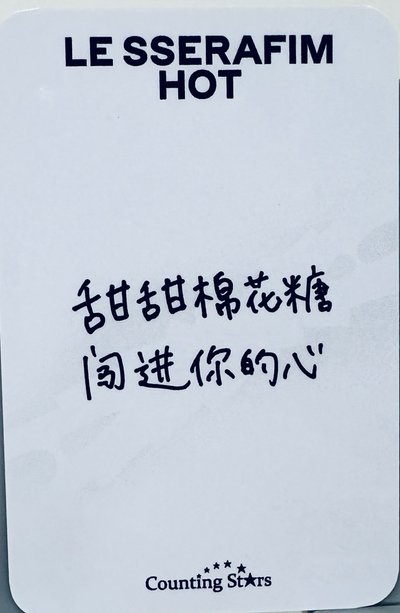 LE SSERAFIM
HOT
甜甜棉花糖
闯进你的心
Counting Stars